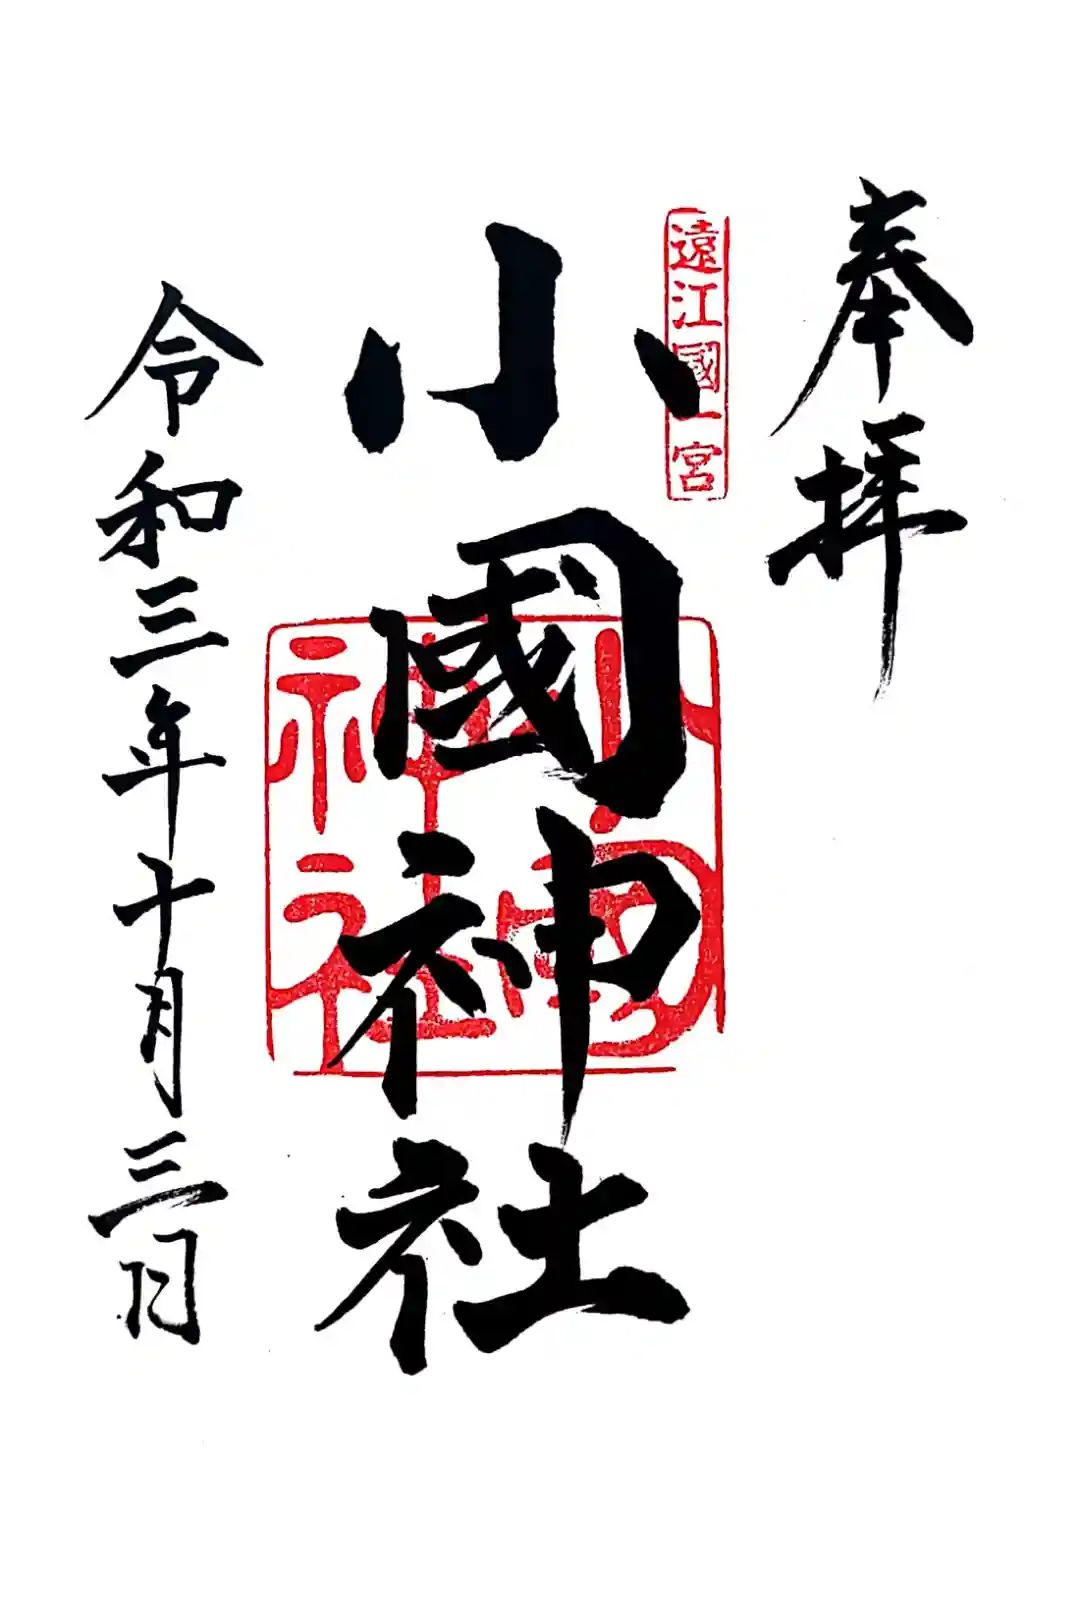 奉拝
遠江國一宮
小國神社
小國神社
令和三年十月三日